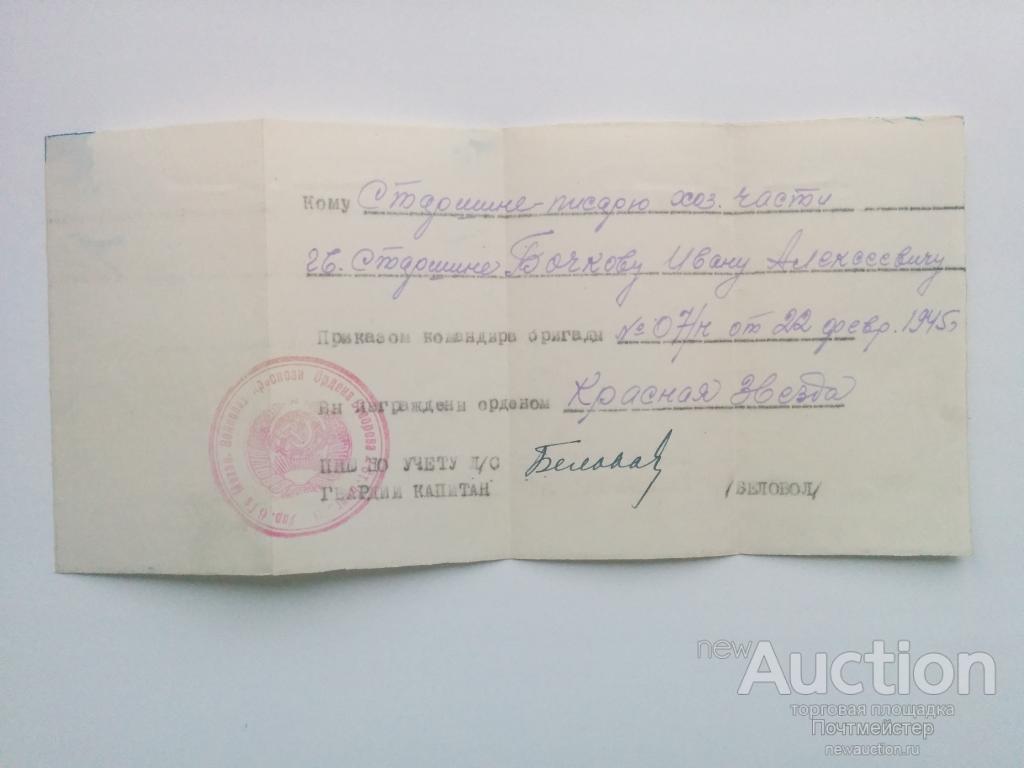 Кому Старшине-писарю хоз. части
гв. Старшине Бочкову Ивану Алексеевичу
Приказом командира бригады № 07/н от 22 февр. 1945г
Вы награждены орденом Красная Звезда
ПНШ ПО УЧЕТУ Л/С
ГВАРДИИ КАПИТАН /БЕЛОВОЛ/
Ордена Суворова
new Auction
торговая площадка
Почтмейстер
newauction.ru